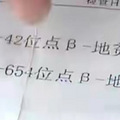 -42位点β-地
-654位点β-地